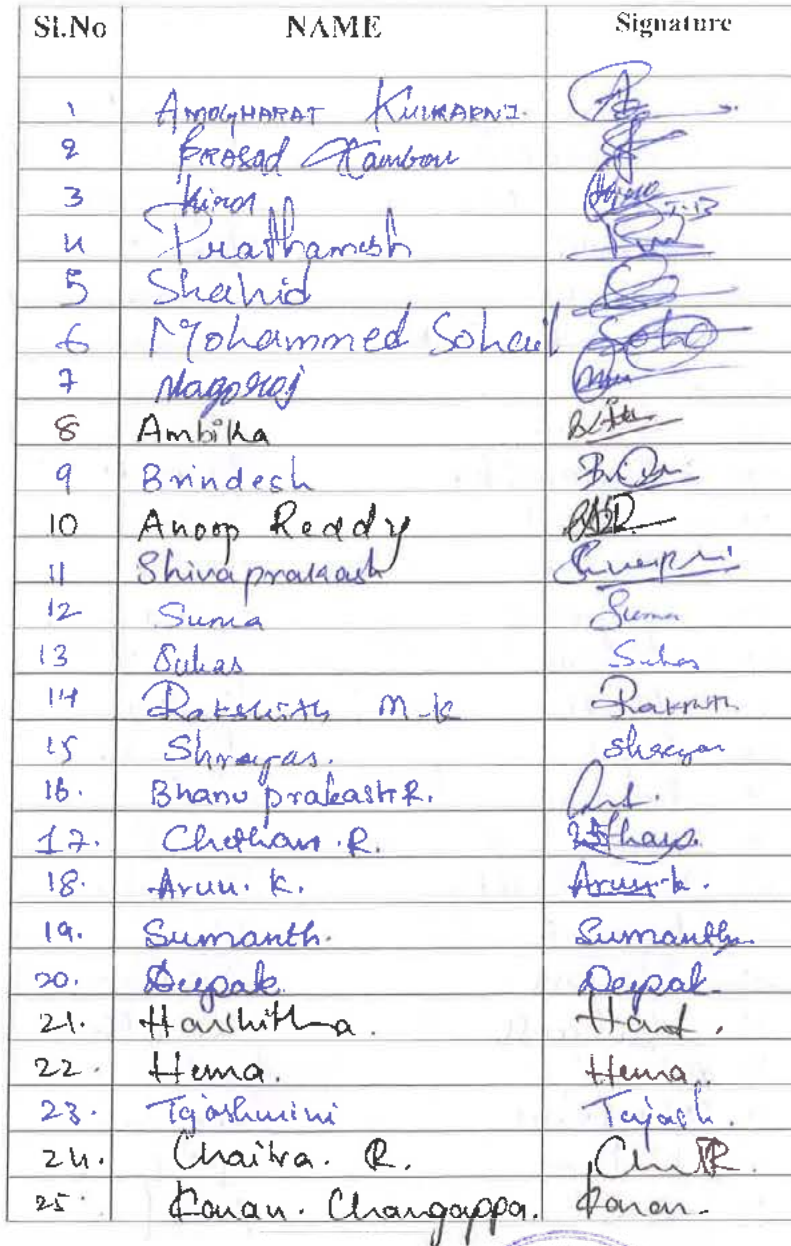 Sl.No NAME Signature
1 AMOGHARAT KULKARNI.
2 PRASAD
3 Kiran
4 Prathamesh
5 Shahid
6 Mohammed Sohail Soha
7 Nagaraj
8 Ambika
9 Brindesh
10 Anoop Reddy
11 Shivaprakash
12 Suma Suma
13 Suhas Suhas
14 Rakshith M-K
15 Shreyas. Shreyas
16. Bhanu prakash R.
17. Chethan. R.
18. Arun. K. Arun. k.
19. Sumanth. Sumanth.
20. Deepak. Deepak.
21. Harshitha.
22. Hema. Hema.
23. Tejashwini Tejash.
24. Chaitra. R.
25 Ranan. Changappa. Ranan.